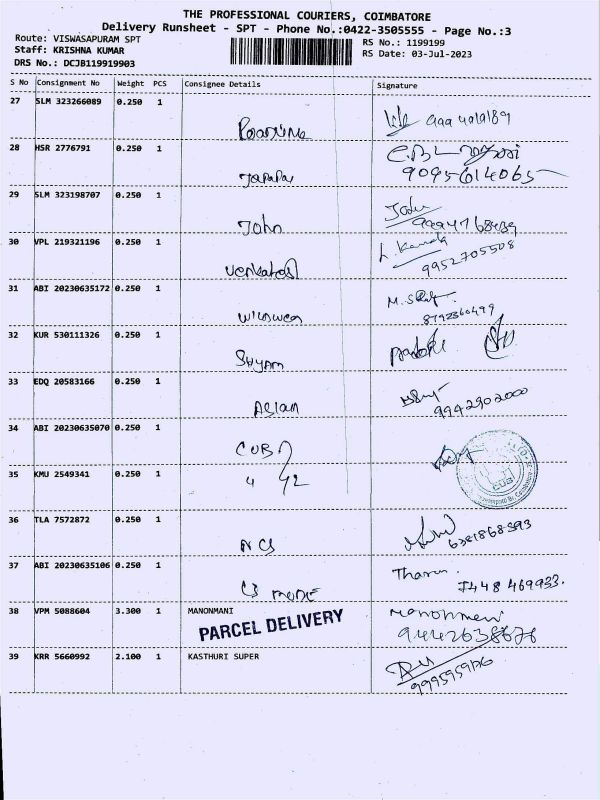 THE PROFESSIONAL COURIERS, COIMBATORE
Delivery Runsheet - SPT - Phone No.:0422-3505555 - Page No.:3
Route: VISWASAPURAM SPT
RS No.: 1199199
Staff: KRISHNA KUMAR
RS Date: 03-Jul-2023
DRS No.: DCJB119919903
S No Consignment No Weight PCS Consignee Details Signature
27 SLM 323266089 0.250 1
28 HSR 2776791 0.250 1
9095614065
29 SLM 323198707 0.250 1
John
John
30 VPL 219321196 0.250 1
9952705508
31 ABI 20230635172 0.250 1
32 KUR 530111326 0.250 1
Shyam
33 EDQ 20583166 0.250 1
Aslam 9942902000
34 ABI 20230635070 0.250 1
CUB
35 KMU 2549341 0.250 1
36 TLA 7572872 0.250 1
37 ABI 20230635106 0.250 1
Tharun
7448469933.
38 VPM 5088604 3.300 1 MANONMANI
PARCEL DELIVERY
9442638678
39 KRR 5660992 2.100 1 KASTHURI SUPER